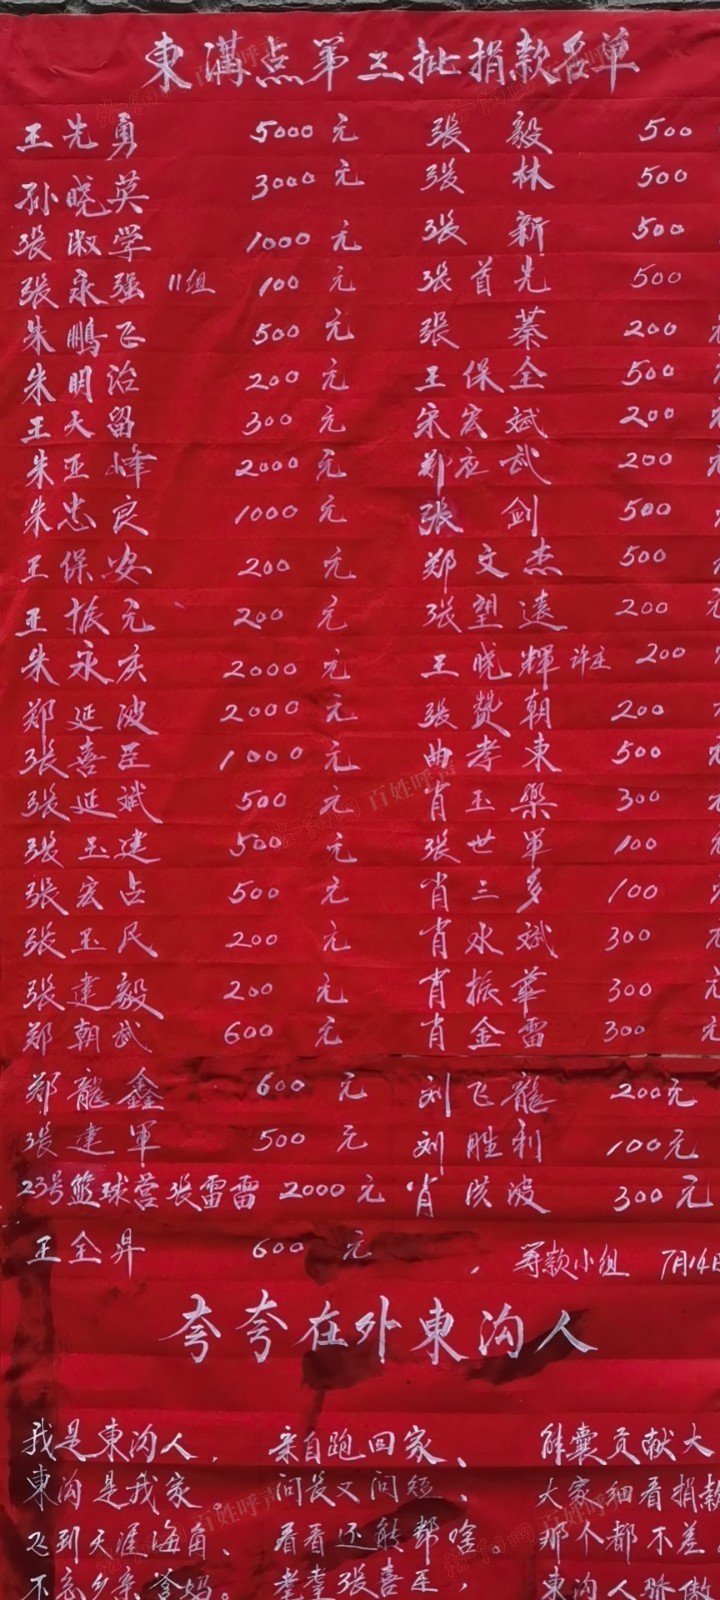 東溝点第三批捐款名单
王先勇 5000元 張毅 500
孙晓英 3000元 張林 500
張淑学 1000元 張新 500
張永强 11组 100元 張首先 500
朱鹏飞 500元 張蓁 200元
朱明治 200元 王保全 500元
王天留 300元 宋宏斌 200元
朱亚峰 2000元 郑应武 200元
朱忠良 1000元 張剑 500元
王保安 200元 郑文杰 500元
王振元 200元 張望遠 200元
朱永庆 2000元 王晓輝 许庄 200元
郑延波 2000元 張贊朝 200元
張喜臣 1000元 曲孝東 500元
張延斌 500元 肖玉樂 300元
張玉建 500元 張世軍 100元
張宏占 500元 肖三多 100元
張玉民 200元 肖水斌 300元
張建毅 200元 肖振華 300元
郑朝武 600元 肖金雷 300元
郑龍鑫 600元 刘飞龍 200元
張建軍 500元 刘胜利 100元
23号篮球营張雷雷 2000元 肖洪波 300元
王全昇 600元 筹款小组 7月14日
夸夸在外東沟人
我是東沟人, 亲自跑回家、 解囊贡献大
東沟是我家。 问長又问短、 大家细看捐款
飞到天涯海角、 看看还能帮啥。 那个都不差
不忘乡亲爸妈。 耄耋張喜臣, 東沟人骄傲
百姓呼声